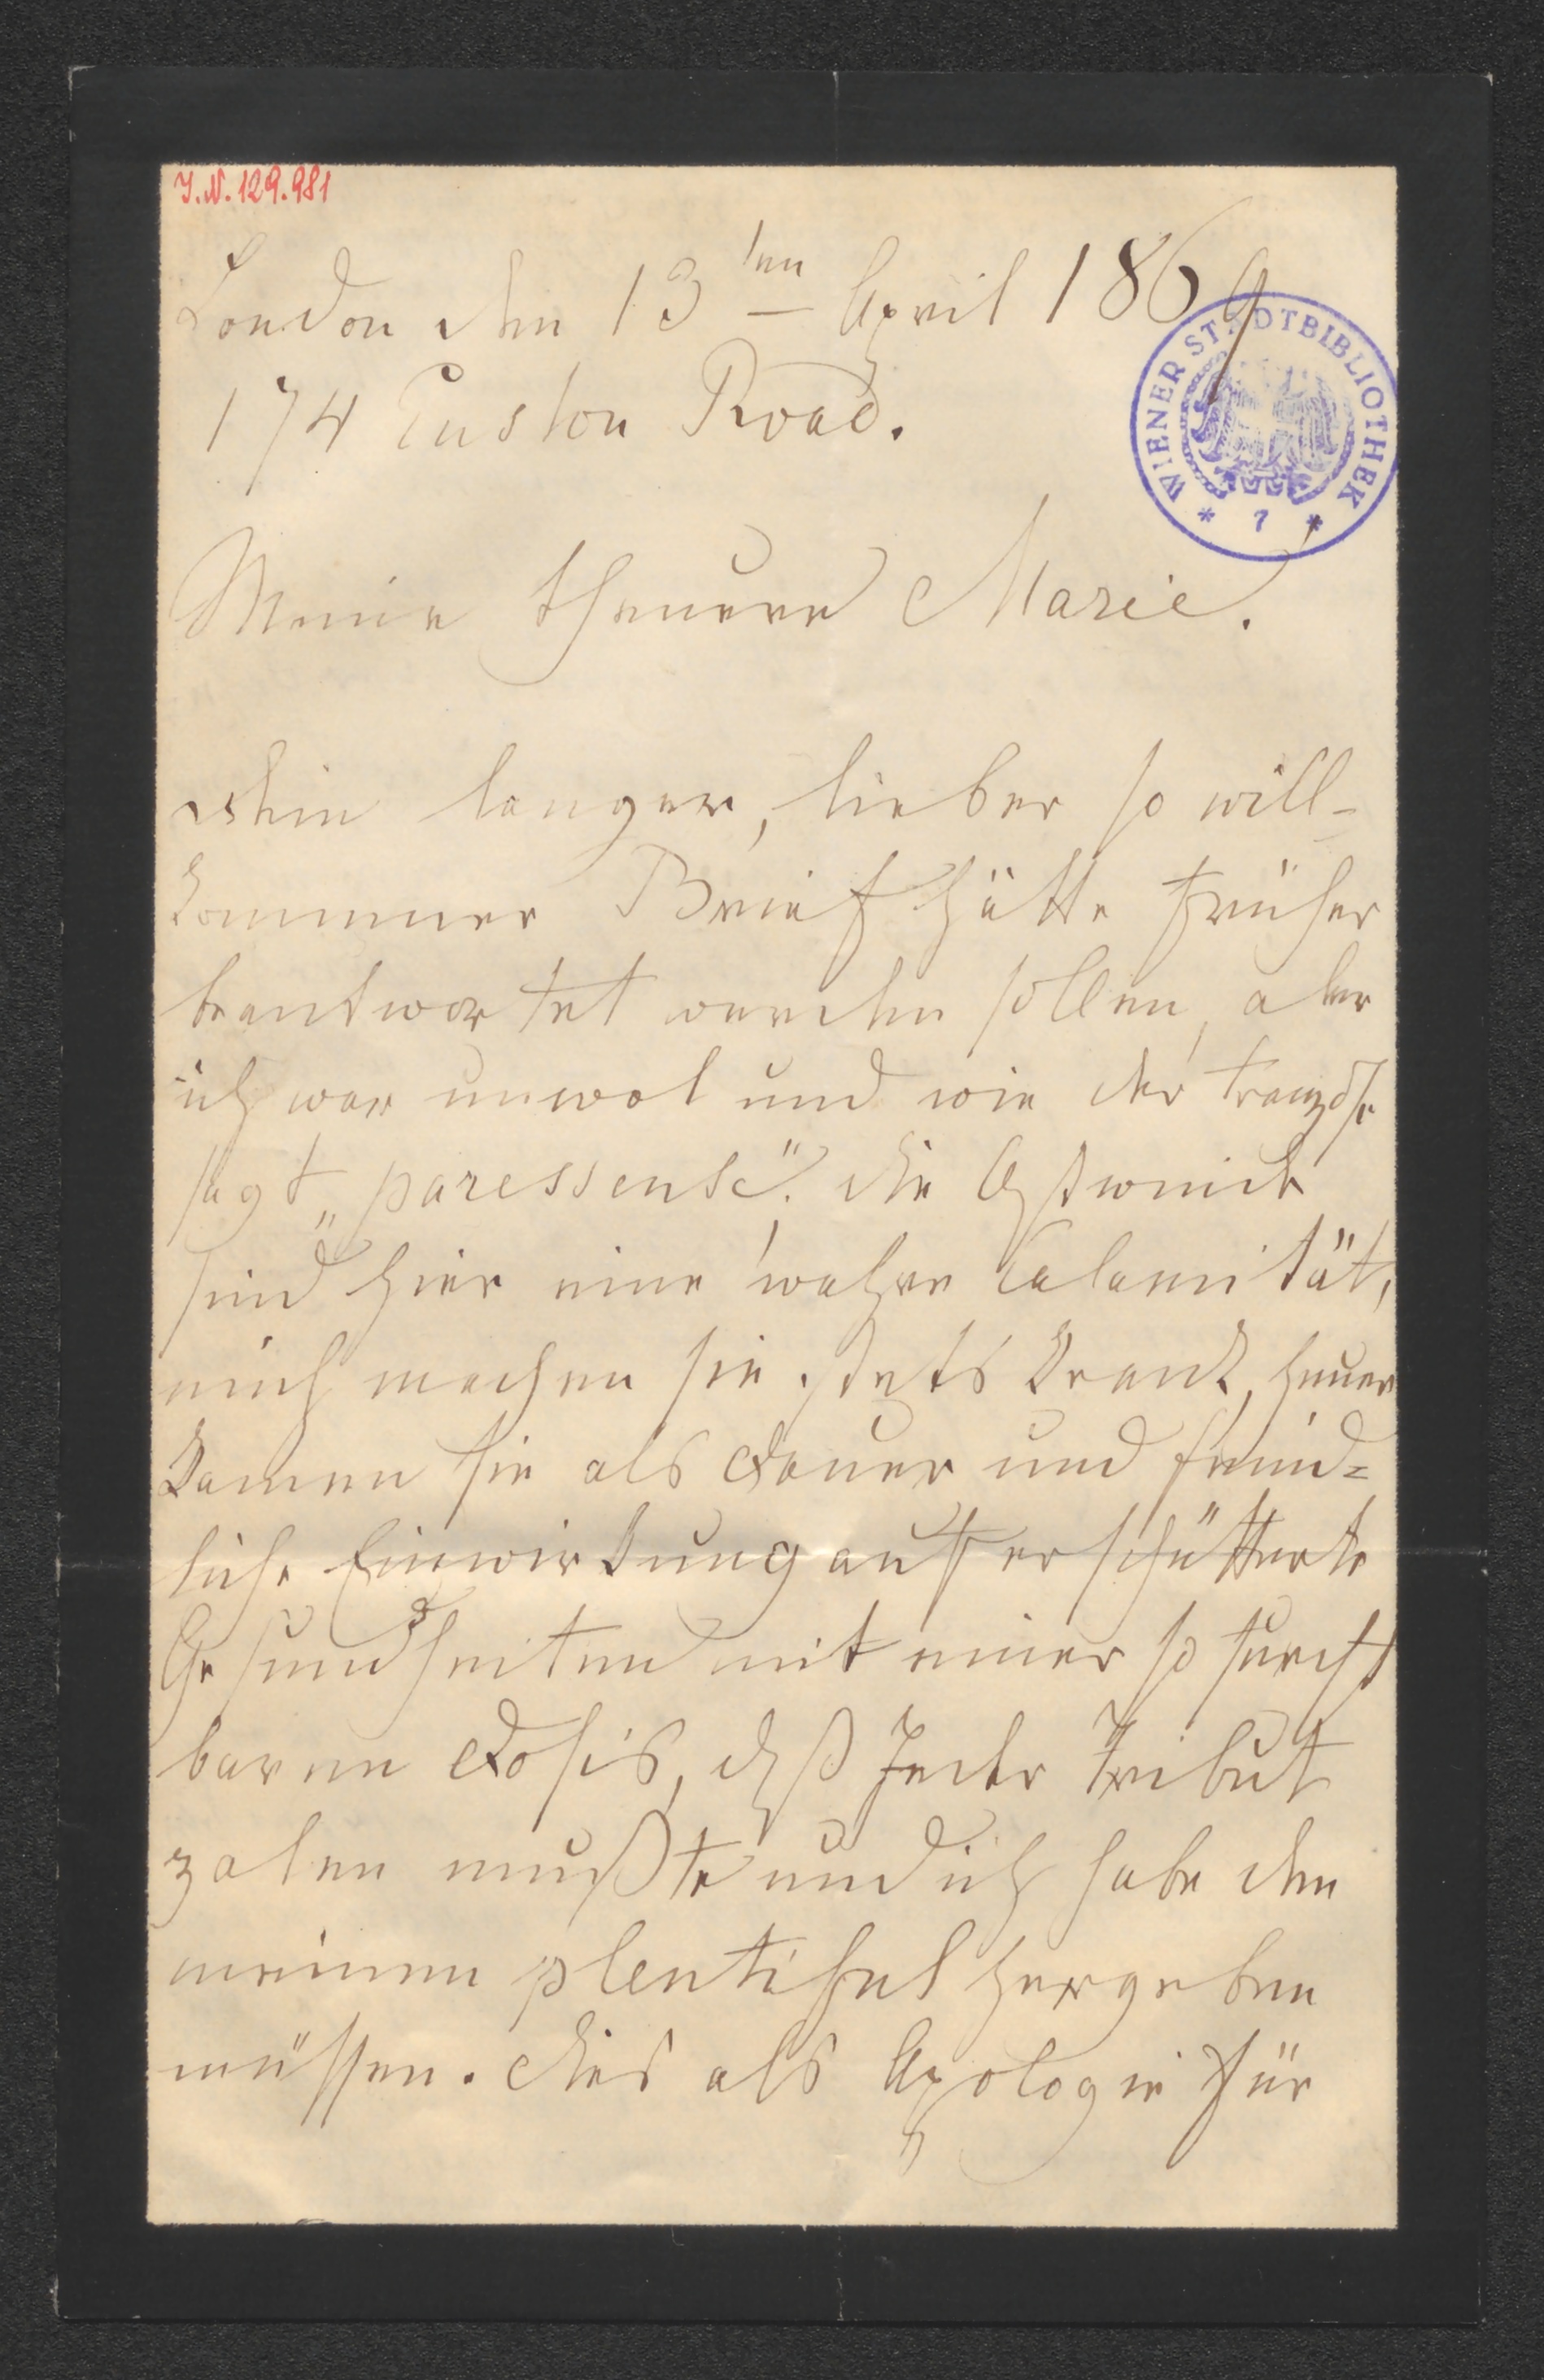 I.N. 129.981
London den 13ten April 1869
174 Euston Road.
WIENER STADTBIBLIOTHEK
* 7 *
Meine theuere Marie.
dein langer, lieber so will-
kommner Brief hätte früher
beantwortet werden sollen, aber
ich war unwol und wie der Franzose
sagt „paresseuse". Die Ostwinde
sind hier eine wahre Calamität,
mich machen sie stets krank, heuer
kamen sie als Dauer und feind=
liche Einwirkung auf erschütterte
Gesundheiten mit einer so furcht
baren Dosis, daß Jeder Tribut
zalen mußte und ich habe den
meinen plentiful hergeben
müssen. Dies als Apologie für